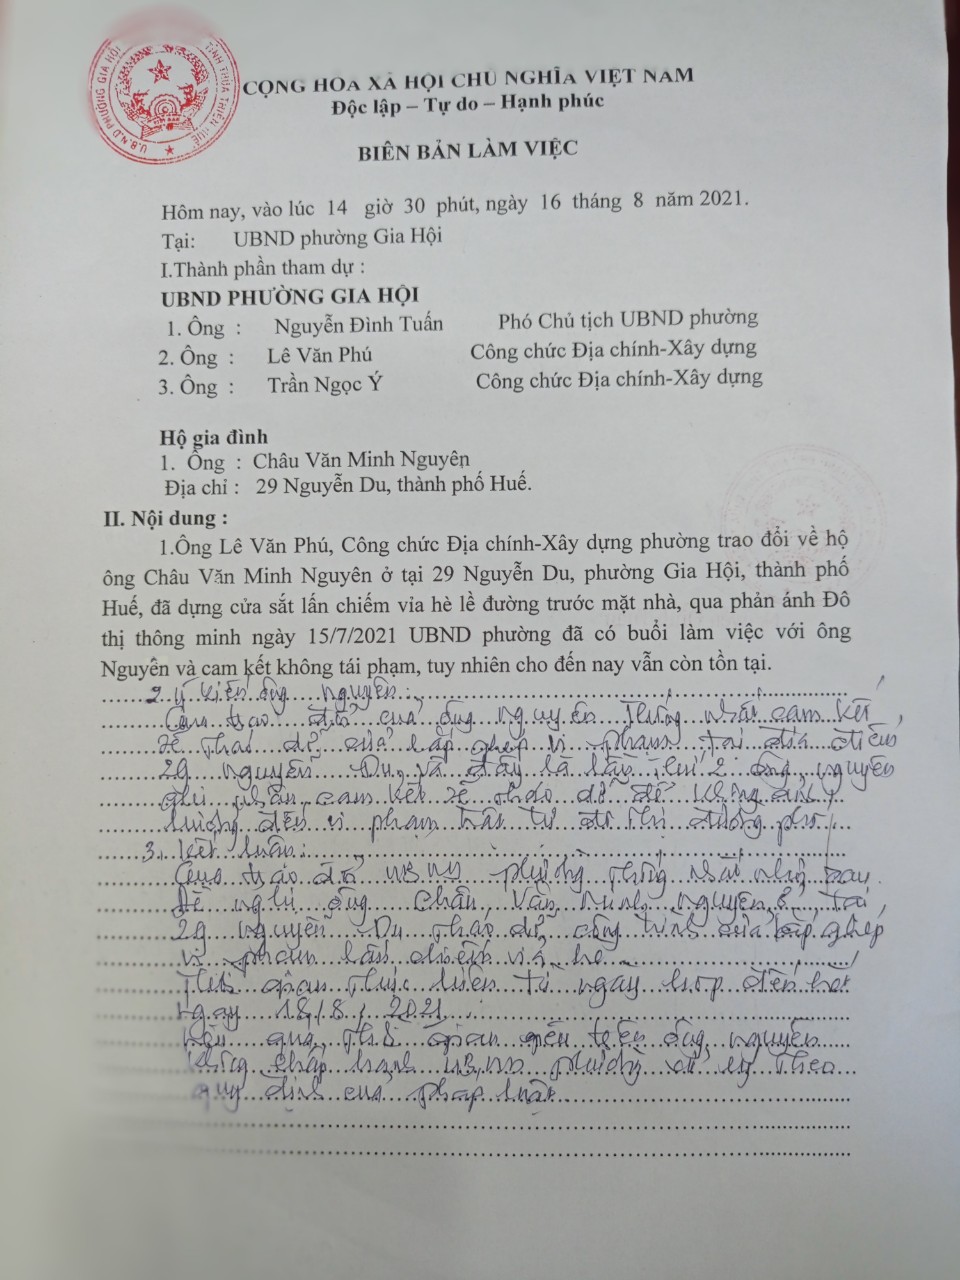 U.B.N.D PHƯỜNG GIA HỘI
TỈNH THỪA THIÊN HUẾ
CỘNG HOÀ XÃ HỘI CHỦ NGHĨA VIỆT NAM
Độc lập – Tự do – Hạnh phúc
BIÊN BẢN LÀM VIỆC
Hôm nay, vào lúc 14 giờ 30 phút, ngày 16 tháng 8 năm 2021.
Tại: UBND phường Gia Hội
I.Thành phần tham dự :
UBND PHƯỜNG GIA HỘI
1. Ông : Nguyễn Đình Tuấn Phó Chủ tịch UBND phường
2. Ông : Lê Văn Phú Công chức Địa chính-Xây dựng
3. Ông : Trần Ngọc Ý Công chức Địa chính-Xây dựng
Hộ gia đình
1. Ông : Châu Văn Minh Nguyên
Địa chỉ : 29 Nguyễn Du, thành phố Huế.
II. Nội dung :
1.Ông Lê Văn Phú, Công chức Địa chính-Xây dựng phường trao đổi về hộ
ông Châu Văn Minh Nguyên ở tại 29 Nguyễn Du, phường Gia Hội, thành phố
Huế, đã dựng cửa sắt lấn chiếm vỉa hè lề đường trước mặt nhà, qua phản ánh Đô
thị thông minh ngày 15/7/2021 UBND phường đã có buổi làm việc với ông
Nguyên và cam kết không tái phạm, tuy nhiên cho đến nay vẫn còn tồn tại.
2. ý kiến ông Nguyên:
Qua trao đổi của ông Nguyên thống nhất cam kết
sẽ tháo dỡ cửa lắp ghép vi phạm tại địa điểm
29 Nguyễn Du, và đây là lần thứ 2 ông Nguyên
ghi nhận cam kết sẽ tháo dỡ để không ảnh
hưởng đến vi phạm trật tự đô thị đường phố.
3. Kết luận:
Qua trao đổi UBND phường thống nhất
Đề nghị ông Châu Văn Minh Nguyên ở tại
29 Nguyễn Du tháo dỡ công trình cửa lắp ghép
vi phạm lấn chiếm vỉa hè
Thời gian thực hiện từ ngày họp đến hết
ngày 18/8/2021.
Nếu quá thời gian nêu trên ông Nguyên
không chấp hành UBND phường xử lý theo
quy định của pháp luật